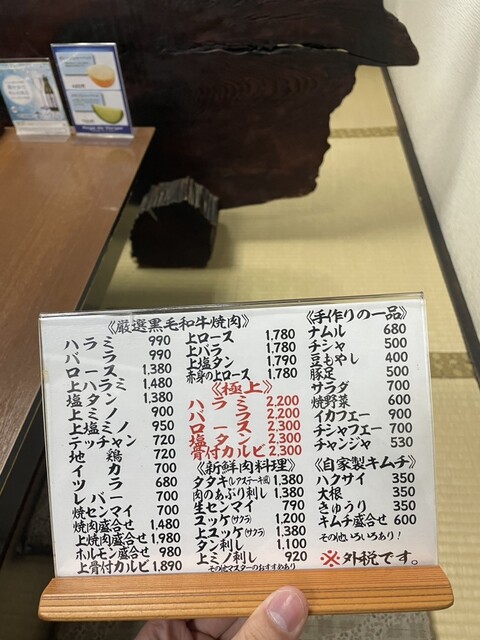 《厳選黒毛和牛焼肉》
ハラミ 990
バラ 990
ロース 1,380
上ハラミ 1,480
塩タン 1,380
上ミノ 900
上塩ミノ 950
テッチャン 720
地鶏 720
イカ 700
ツラ 680
レバー 700
焼センマイ 700
焼肉盛合せ 1,480
上焼肉盛合せ 1,980
ホルモン盛合せ 980
上骨付カルビ 1,890
上ロース 1,780
上バラ 1,780
上塩タン 1,790
赤身の上ロース 1,780
《極上》
ハラミ 2,200
バラ 2,200
ロース 2,300
塩タン 2,300
骨付カルビ 2,300
《新鮮肉料理》
タタキ(レクステーキ風) 1,380
肉のあぶり刺し 1,380
生センマイ 790
ユッケ(サクラ) 1,200
上ユッケ(サクラ) 1,380
タン刺し 1,100
上ミノ刺し 920
その他マスターのおすすめあり
《手作りの一品》
ナムル 680
チシャ 500
豆もやし 400
豚足 500
サラダ 700
焼野菜 600
イカフェー 900
チシャフェー 700
チャンジャ 530
《自家製キムチ》
ハクサイ 350
大根 350
きゅうり 350
キムチ盛合せ 600
その他、いろいろあり!
※外税です。